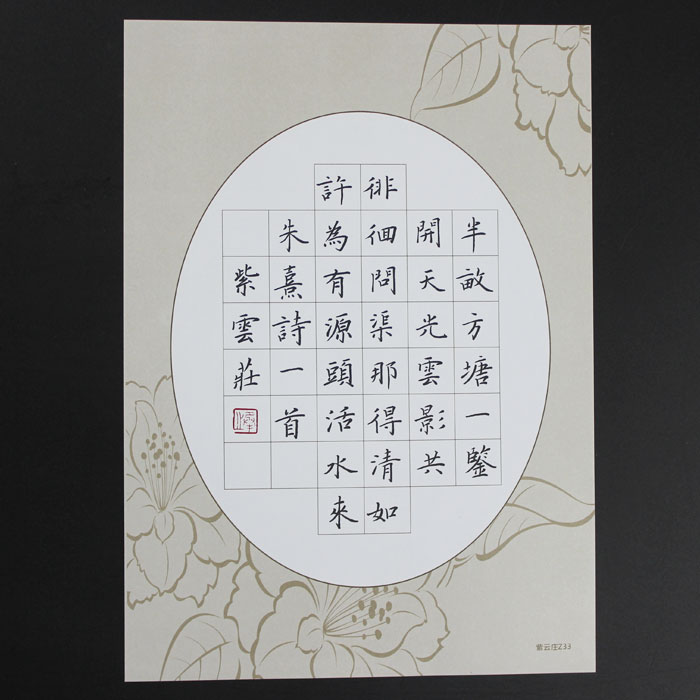 半畝方塘一鑒
開天光雲影共
徘徊問渠那得清如
許為有源頭活水來
朱熹詩一首
紫雲莊
紫云庄Z33